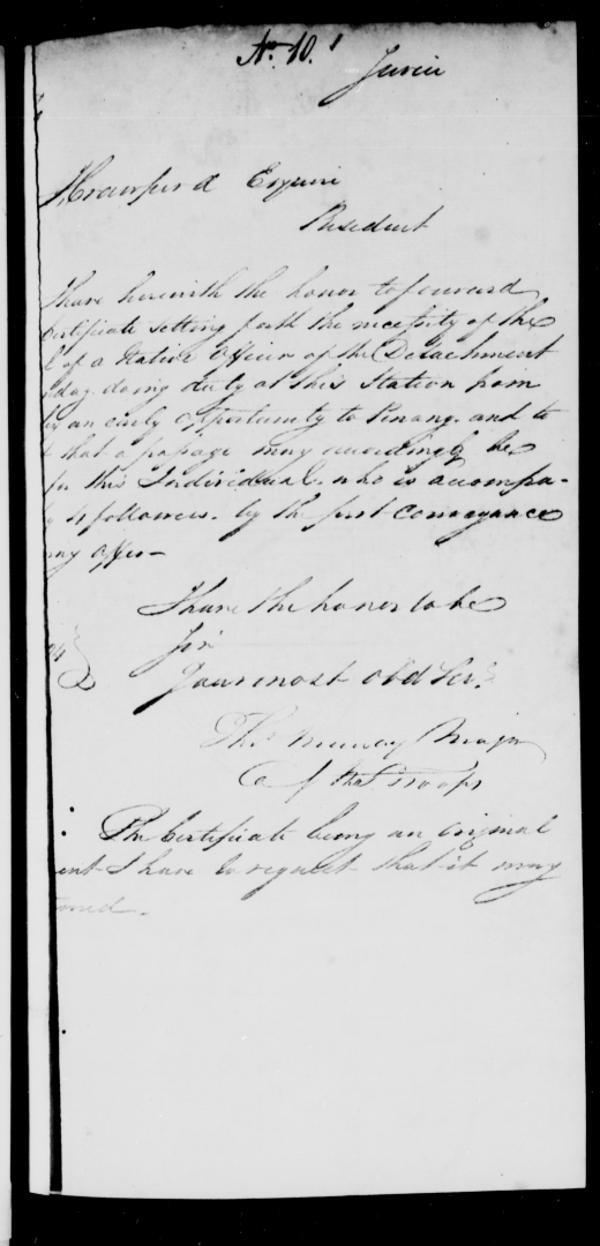 No. 10.
J. Crawfurd Esquire
Resident
I have herewith the honor to forward
Certificate setting forth the necessity of the
of a Native Officer of the Detachment
doing duty at this Station from
by an early opportunity to Pinang. and to
that a passage may accordingly be
for this Individual. who is accompa-
4 followers. by the first conveyance
may offer—
I have the honor to be
Sir
Your most obd Ser.
Thos Murray Major
Cg of the Troops
The Certificate being an original
I have to request that it may